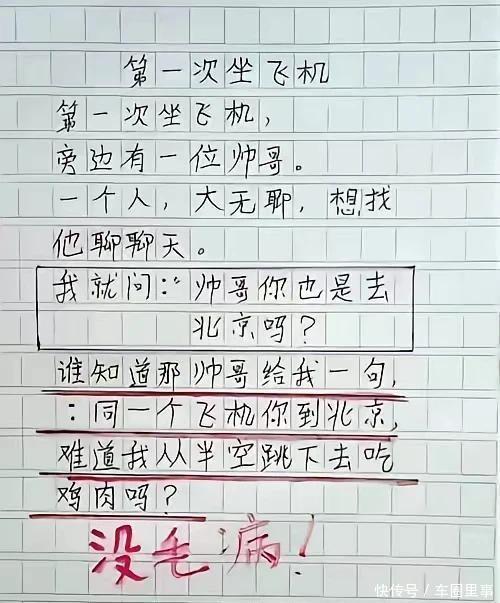 第一次坐飞机
第一次坐飞机,
旁边有一位帅哥。
一个人,大无聊,想找
他聊聊天。
我就问:“帅哥你也是去
北京吗?
谁知道那帅哥给我一句,
:同一个飞机你到北京,
难道我从半空跳下去吃
鸡肉吗?
没毛病!
快传号/车圈里事